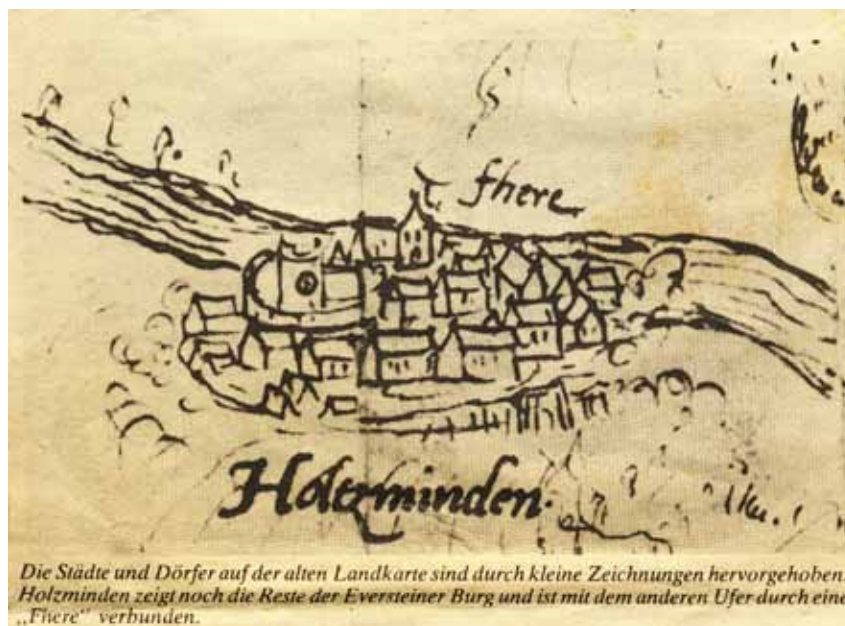 fhere
Holtzminden.
Die Städte und Dörfer auf der alten Landkarte sind durch kleine Zeichnungen hervorgehoben.
Holzminden zeigt noch die Reste der Eversteiner Burg und ist mit dem anderen Ufer durch eine
„Fhere“ verbunden.